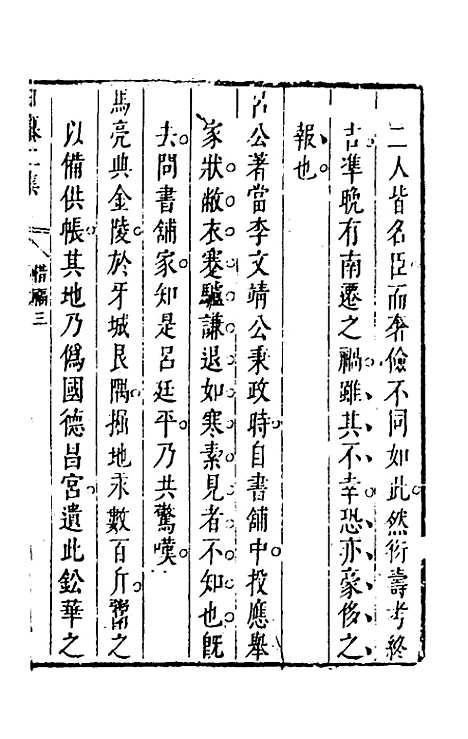 二人皆名臣而奢儉不同如此然衍壽考終
吉準晚有南遷之禍雖其不幸恐亦豪侈之
報也
呂公著當李文靖公秉政時自書舖中投應舉
家狀敝衣蹇驢謙退如寒素見者不知也旣
去問書舖家知是呂廷平乃共驚嘆
馬亮典金陵於牙城艮隅掘地汞數百斤鬻之
以備供帳其地乃僞國德昌宮遺此鈆華之
二集
惜福
三